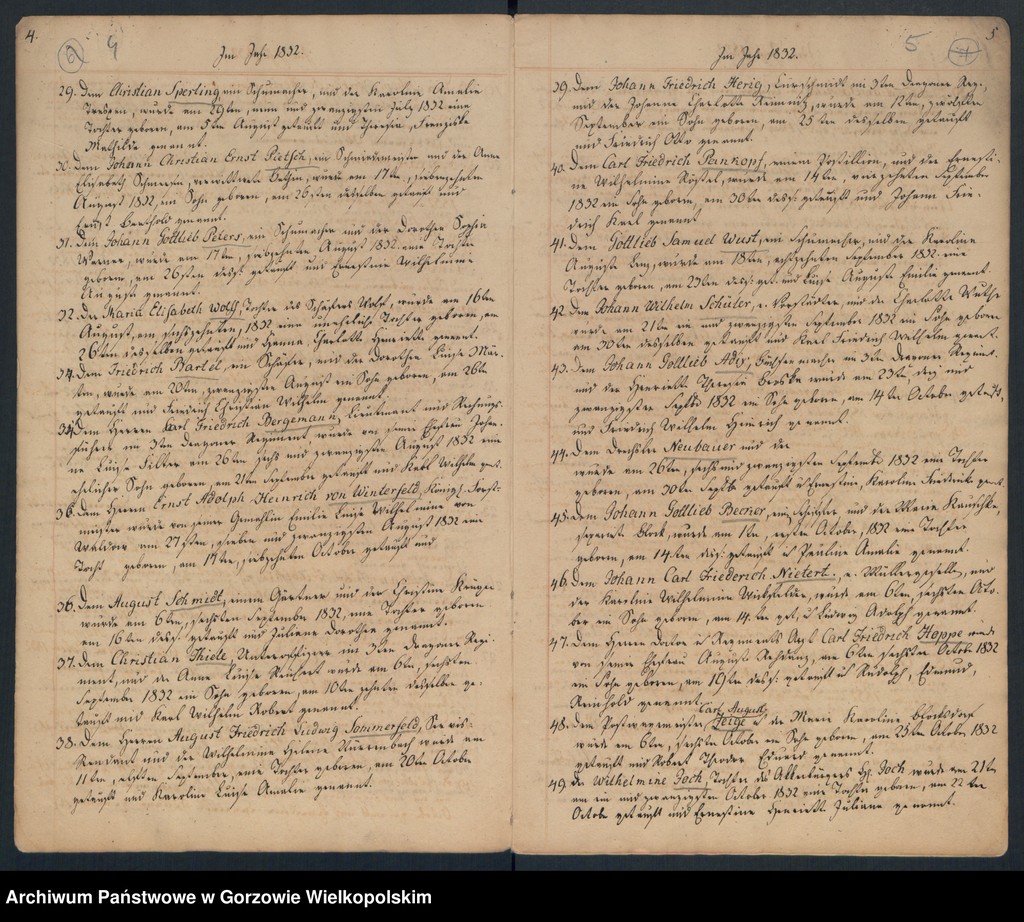 4.
4
Im Jahr 1832.
29. Dem Christian Sperling ein Schumacher, und der Karoline Amalie
wurde am 29ten, neun und zwanzigsten July 1832 eine
Tochter geboren, am 5ten August getauft und Theresia, Franziska
Mathilde genannt.
30. Dem Johann Christian Ernst Pietsch, ein Schmiedemeister und der Anna
Elisabeth verwittwete wurde am 17ten, siebzehnten
August 1832, ein Sohn geboren, am 26sten desselben getauft und
Ernst Berthold genannt.
31. Dem Johann Gottlieb Peters, ein Schumacher und der Dorothea Sophia
Werner, wurde am 17ten, siebzehnten August 1832 eine Tochter
geboren, am 26sten dess: getauft und Ernestine Wilhelmine
Auguste genannt.
32. Der Maria Elisabeth Wolf, Tochter des Schäfers Wolf, wurde am 16ten
August, am sechszehnten, 1832 eine uneheliche Tochter geboren, am
26sten desselben getauft und Hanne, Charlotte Henriette genannt.
34. Dem Friedrich Bartel, ein Schäfer, und der Dorothee Luise
wurde am 20ten, zwanzigsten August ein Sohn geboren, am 26ten
getauft und Friedrich Christian Wilhelm genannt.
35. Dem Herren Carl Friedrich Bergemann, Lieutenant und Rechnungs-
führer im 3ten Dragoner Regiment, wurde von seiner Ehefrau Johan-
ne Luise am 26ten sechs und zwanzigsten August 1832 ein
ehelicher Sohn geboren, am 21ten September getauft und Karl Wilhelm gen.
36. Dem Herren Ernst Adolph Heinrich von Winterfeld, Königl. Forst-
meister wurde von seiner Gemahlin Emilie Luise Wilhelmine von
Waldow am 27sten, sieben und zwanzigsten August 1832 eine
Tocht geboren, am 17ten, siebzehnten October getauft und
36. Dem August Schmidt, einem Gärtner und der Christine Krüger
wurde am 6ten, sechsten September 1832, eine Tochter geboren
am 16ten dess: getauft und Juliane Dorothee genannt.
37. Dem Christian Thiele, Unterofficier im 3ten Dragoner Regi-
ment, und der Anne Luise wurde am 6ten, sechsten
September 1832 ein Sohn geboren, am 10ten zehnten desselben ge-
tauft und Karl Wilhelm Robert genannt.
38. Dem Herren August Friedrich Ludwig Sommerfeld,
Rendant und der Wilhelmine Helene wurde am
11ten, elften September, eine Tochter geboren, am 20ten October
getauft und Karoline Luise Amalie genannt.
5
5
Im Jahr 1832.
39. Dem Johann Friedrich Herig, Curschmidt im 3ten Dragoner Reg.,
und der Johanne Charlotte wurde am 12ten, zwölften
September ein Sohn geboren, am 25ten desselben getauft
und Friedrich Otto genannt.
40. Dem Carl Friedrich Pankopf, einem Postillion, und der Ernesti-
ne Wilhelmine wurde am 14ten, vierzehnten September
1832 ein Sohn geboren, am 30ten dess: getauft und Johann Frie-
drich Karl genannt
41. Dem Gottlieb Samuel Wust, ein Schumacher, und der Karoline
Auguste wurde am 18ten, achtzehnten September 1832 eine
Tochter geboren, am 23ten dess: get. und Luise Auguste Emilie genannt.
42. Dem Johann Wilhelm Schüler, und der Charlotte
wurde am 21ten ein und zwanzigsten September 1832 ein Sohn geboren
am 30ten desselben getauft und Karl Friedrich Wilhelm genannt.
43. Dem Johann Gottlieb Büchsenmacher im 3ten Dragoner Regimt.
und der Henriette Therese wurde am 23ten, drei und
zwanzigsten Septbr 1832 ein Sohn geboren, am 14ten October getauft,
und Friedrich Wilhelm Heinrich genannt.
44. Dem Drechsler Neubauer und der
wurde am 26ten, sechs und zwanzigsten September 1832 eine Tochter
geboren, am 30ten Septbr getauft u Ernestine, Karoline Friederike gen.
45. Dem Johann Gottlieb Becker, ein Schäfer und der Marie
wurde am 1ten, ersten October, 1832 eine Tochter
geboren, am 14ten dess: getauft u Pauline Amalie genannt.
46. Dem Johann Carl Friederich Nietert, e. Müllergeselle, und
der Karoline Wilhelmine wurde am 6ten, sechsten Octo-
ber ein Sohn geboren, am 14ten get. u Ludwig Adolph genannt.
47. Dem Herren Doctor u Regiments Arzt Carl Friedrich Hoppe wurde
von seiner Ehefrau Auguste am 6ten sechsten Octob. 1832
ein Sohn geboren, am 19ten dess: getauft u Rudolph, Edmund,
Reinhold genannt.
Carl August
48. Dem Postwagenmeister Feige u der Marie Karoline Blocksdorf
wurde am 6ten, sechsten October ein Sohn geboren, am 25ten October 1832
getauft und Robert Theodor Eduard genannt.
49. Der Wilhelmine Joch, Tochter des Joch wurde am 21ten
am ein und zwanzigsten October 1832 eine Tochter geboren, am 22ten
Octobr getauft und Ernestine Henriette Juliane genannt.
Archiwum Państwowe w Gorzowie Wielkopolskim